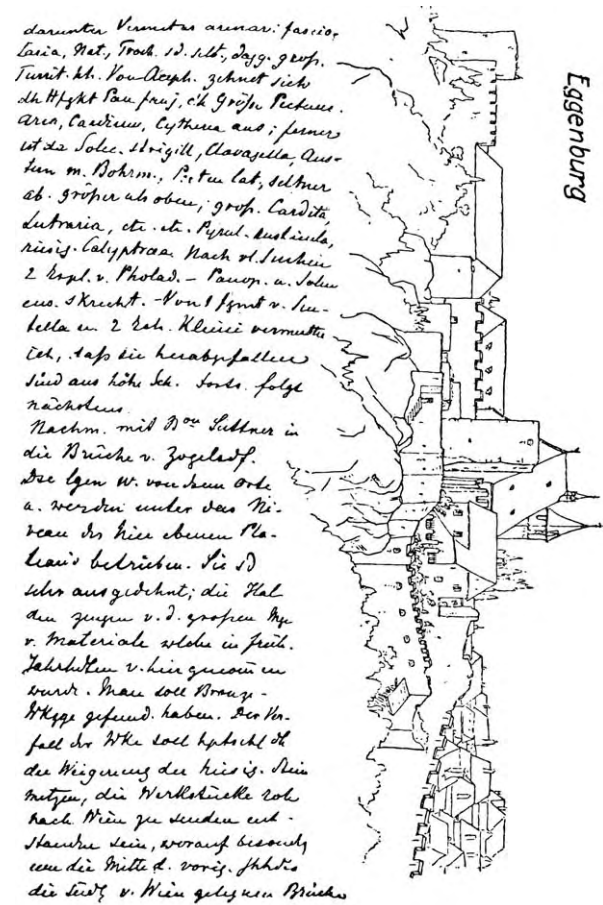 darunter Vermetus arenar: fascio,
laria, Nat., Troch. sd. selt., dagg. groß.
Turrit. hh. Von Aceph. zchnet sich
dh Hfgkt Pan fauj, ch Größe Pectunc.
Arca, Cardium, Cytherea aus; ferner
ist da Solec. strigill, Clavagella, Aus-
tern m. Bohrm., Pecten lat., seltner
ab. größer als oben; groß. Cardita,
Lutraria, etc. etc. Pyrul. rusticula,
riesig. Calyptraea. Nach vl. Suchen
2 Expl. v. Pholad. – Panop. u. Solen
ens. skrecht. – Von 1 fgmt v. Scu-
tella u. 2 Ech. Kleini vermuthe
ich, daß sie herabgefallen
sind aus höhr Sch. Forts. folgt
nächstens.
Nachm. mit Bon Suttner in
die Brüche v. Zogelsdf.
Dse lgen w. von dsem Orte
u. werden unter das Ni-
veau des hier ebenen Pla-
teaus betrieben. Sie sd
sehr ausgedehnt; die Hal
den zeugen v. d. großen Mge
v. Materiale wlche in früh.
Jahrhdten v. hier genommen
wurde. Man soll Bronze-
Wkzge gefund. haben. Der Ver-
fall der Wke soll hptschl dh
die Weigerung der hiesig. Stein
metzen, die Werkstücke roh
nach Wien zu senden ent-
standen sein, worauf besonds
um die Mitte d. vorig. Jhhdts
die südl. v. Wien gelegenen Brüche
Eggenburg